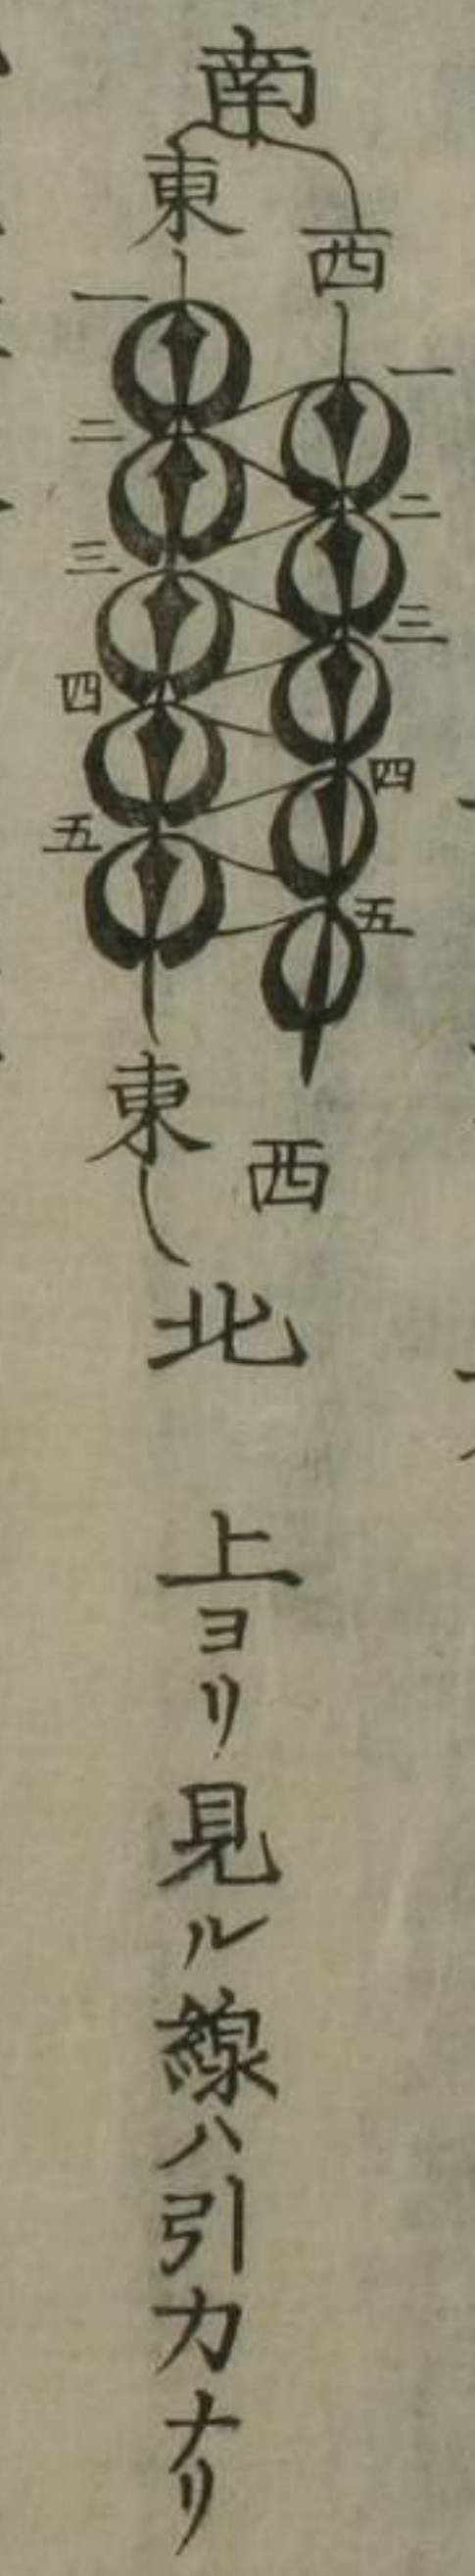 南
西
東
一
二
三
四
五
一
二
三
四
五
西
東
北
上ヨリ見ル線ハ引力ナリ